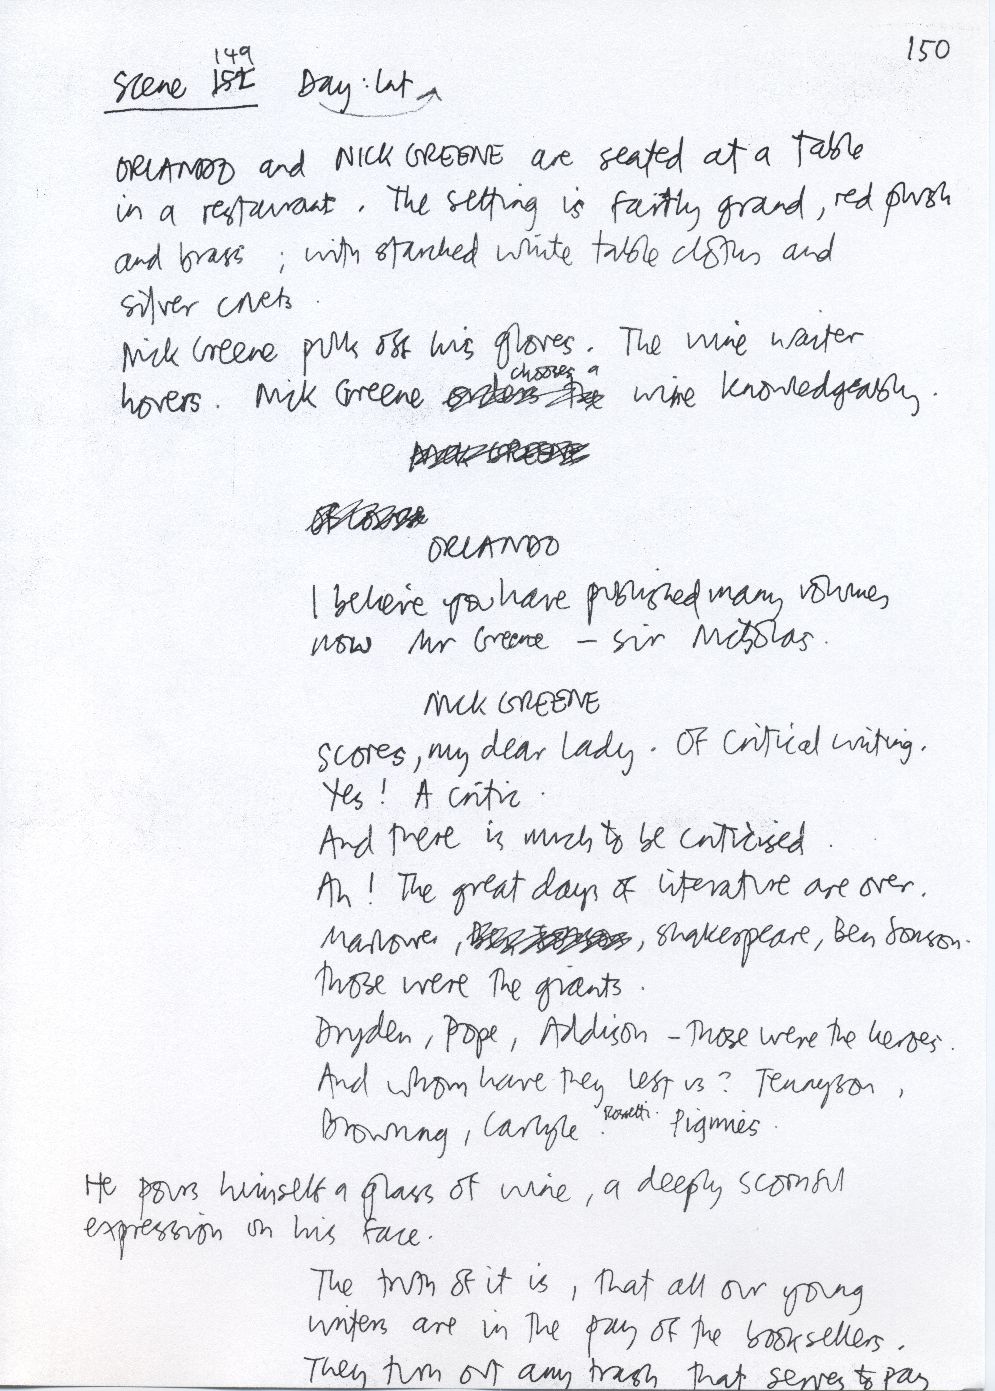 150
149
Scene 151 Day: Int
ORLANDO and NICK GREENE are seated at a table
in a restaurant. The setting is faintly grand, red plush
and brass; with starched white table cloths and
silver cruets.
Nick Greene pulls off his gloves. The wine waiter
chooses a
hovers. Nick Greene orders the wine knowledgeably.
NICK GREENE
ORLANDO
I believe you have published many volumes
now Mr Greene - Sir Nicholas.
NICK GREENE
Scores, my dear lady. Of critical writing.
Yes! A critic.
And there is much to be criticised.
Ah! The great days of literature are over.
Marlowe, Ben Jonson, Shakespeare, Ben Jonson.
Those were the giants.
Dryden, Pope, Addison - Those were the heroes.
And whom have they left us? Tennyson,
Browning, Carlyle. Rossetti. Pigmies.
He pours himself a glass of wine, a deeply scornful
expression on his face.
The truth of it is, that all our young
writers are in the pay of the booksellers.
They turn out any trash that serves to pay